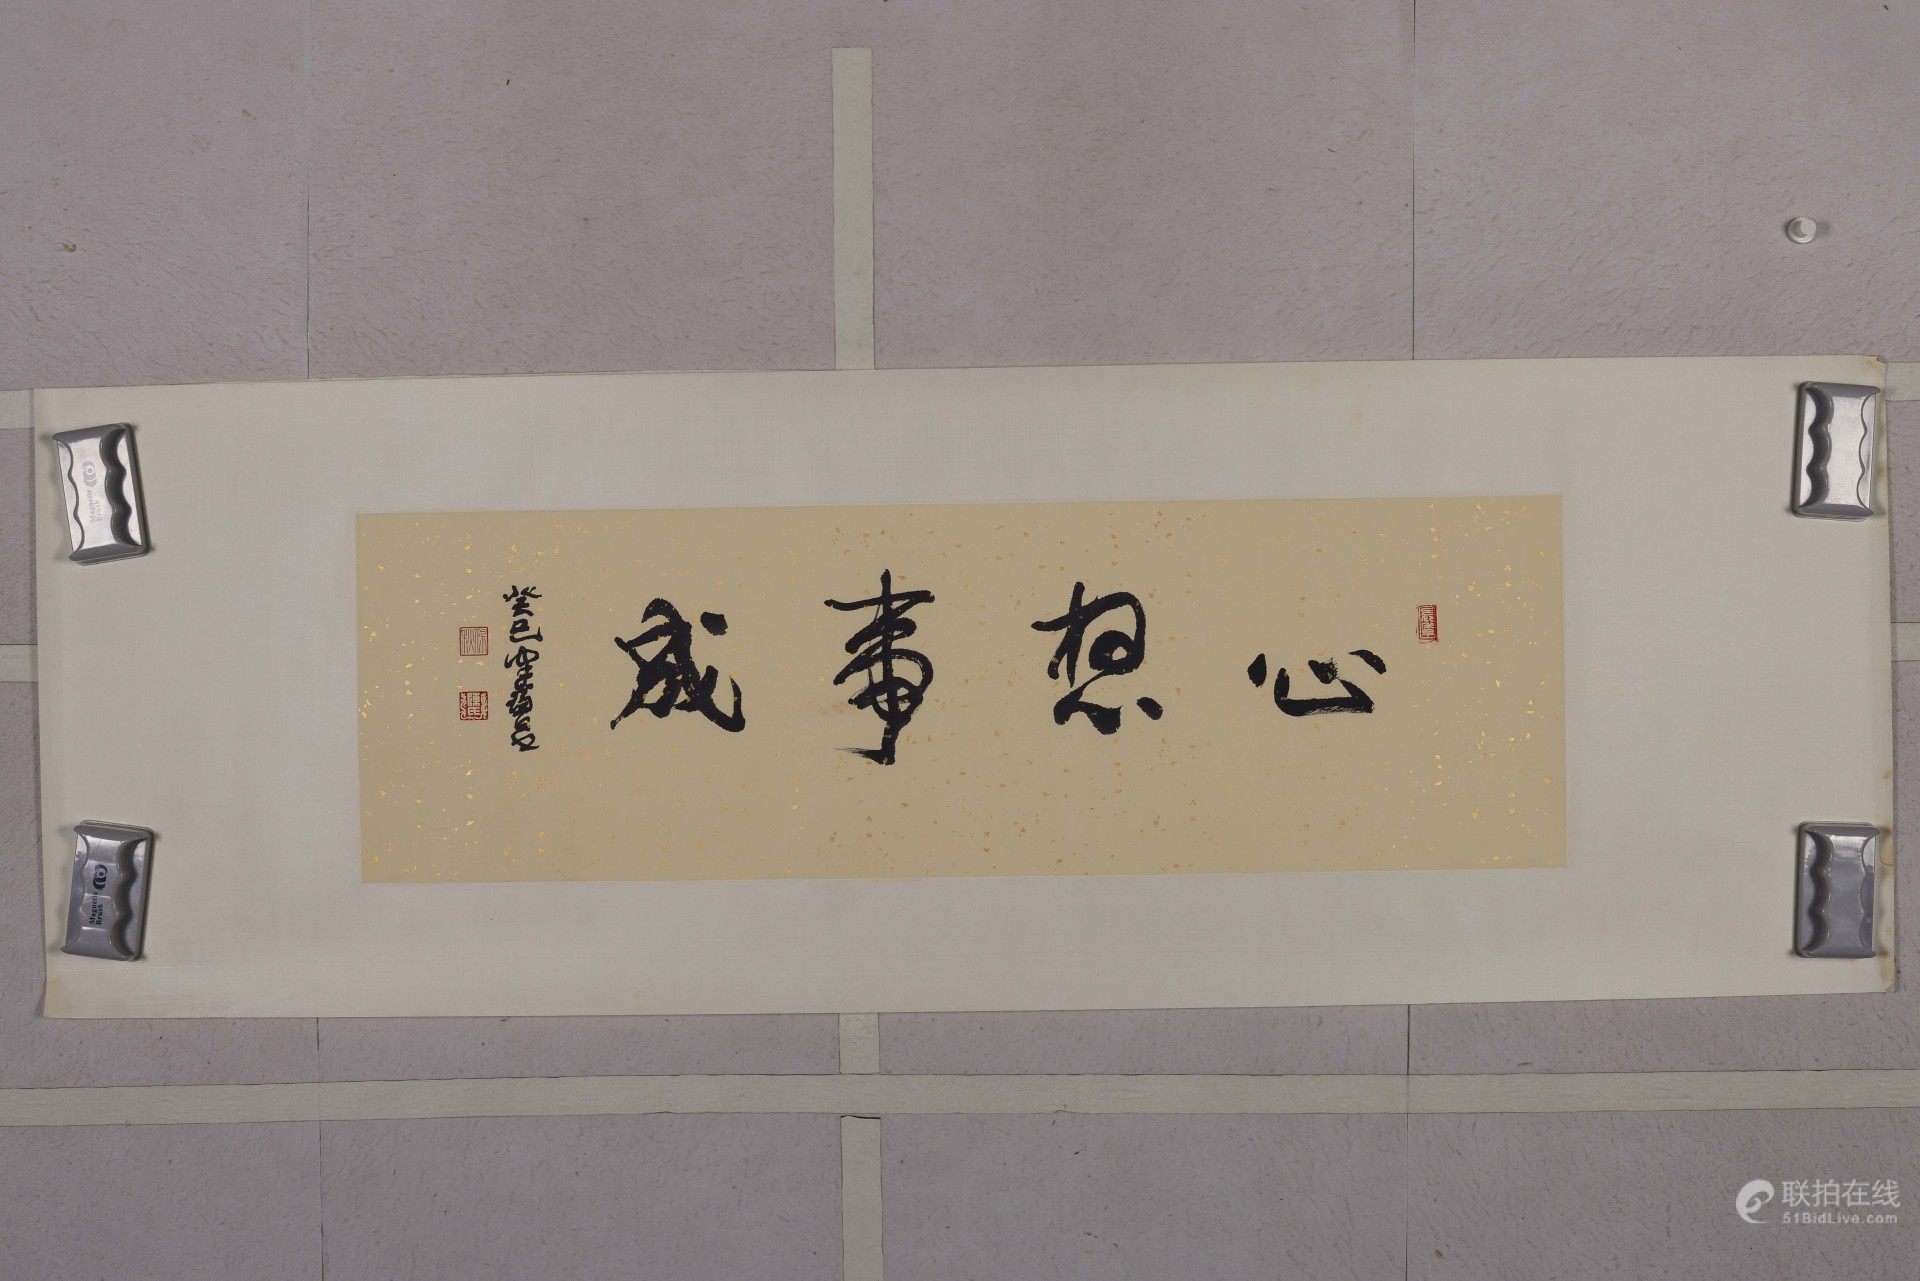 心想事成
癸巳
Magnetic
Brush
Magnetic
Brush
联拍在线
51BidLive.com